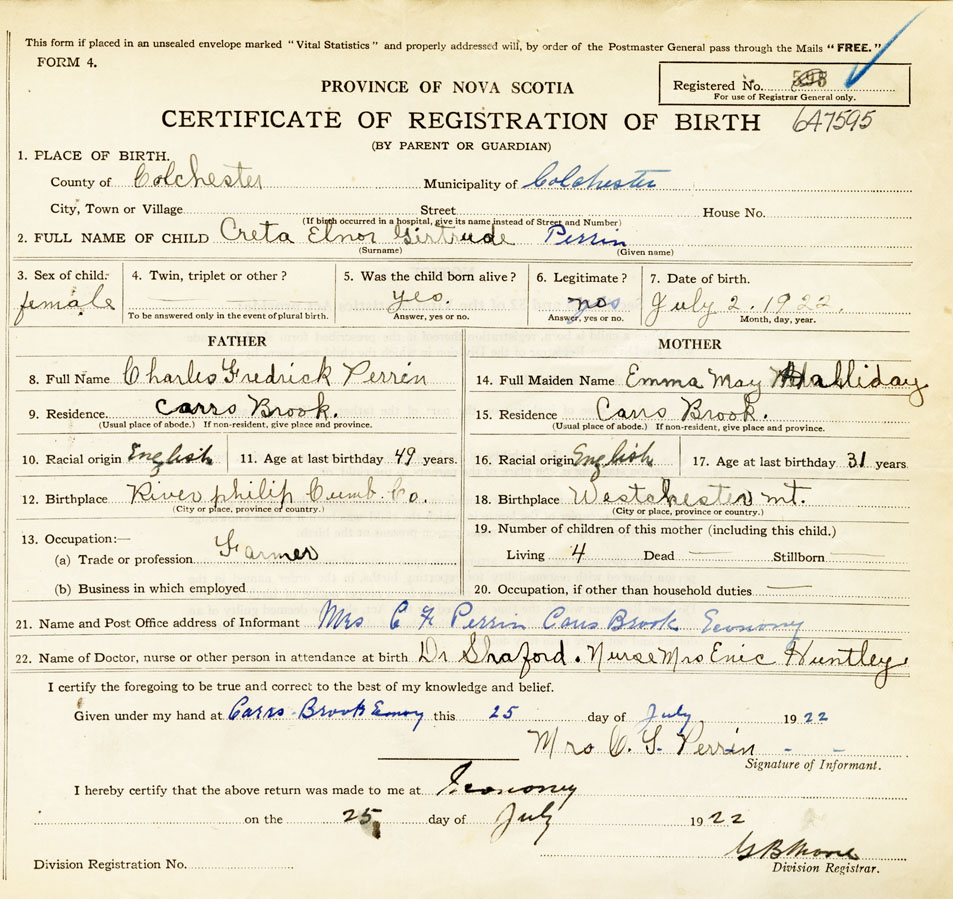 This form if placed in an unsealed envelope marked "Vital Statistics" and properly addressed will, by order of the Postmaster General pass through the Mails "FREE."
FORM 4.
PROVINCE OF NOVA SCOTIA
Registered No.
For use of Registrar General only.
CERTIFICATE OF REGISTRATION OF BIRTH 647595
(BY PARENT OR GUARDIAN)
1. PLACE OF BIRTH.
County of Colchester Municipality of Colchester
City, Town or Village Street House No.
(If birth occurred in a hospital, give its name instead of Street and Number)
2. FULL NAME OF CHILD Creta Elnor Girtrude Perrin
(Surname) (Given name)
3. Sex of child. 4. Twin, triplet or other? 5. Was the child born alive? 6. Legitimate? 7. Date of birth.
female yes. July 2. 1922.
To be answered only in the event of plural birth. Answer, yes or no. Answer, yes or no. Month, day, year.
FATHER MOTHER
8. Full Name Charles Fredrick Perrin 14. Full Maiden Name Emma May Halliday
9. Residence. Carrs Brook. 15. Residence Carrs Brook.
(Usual place of abode.) If non-resident, give place and province. (Usual place of abode.) If non-resident, give place and province.
10. Racial origin English 11. Age at last birthday 49 years. 16. Racial origin English 17. Age at last birthday 31 years
12. Birthplace River philip Cumb. Co. 18. Birthplace Westchester mt.
(City or place, province or country.) (City or place, province or country.)
13. Occupation:— 19. Number of children of this mother (including this child.)
(a) Trade or profession Farmer Living 4 Dead — Stillborn —
(b) Business in which employed 20. Occupation, if other than household duties —
21. Name and Post Office address of Informant Mrs C F Perrin Carrs Brook Economy
22. Name of Doctor, nurse or other person in attendance at birth Dr Shaford. Nurse Mrs Huntley
I certify the foregoing to be true and correct to the best of my knowledge and belief.
Given under my hand at Carrs Brook this 25 day of July 1922
Mrs C. F. Perrin
Signature of Informant.
I hereby certify that the above return was made to me at Economy
on the 25 day of July 1922
Division Registration No. Division Registrar.